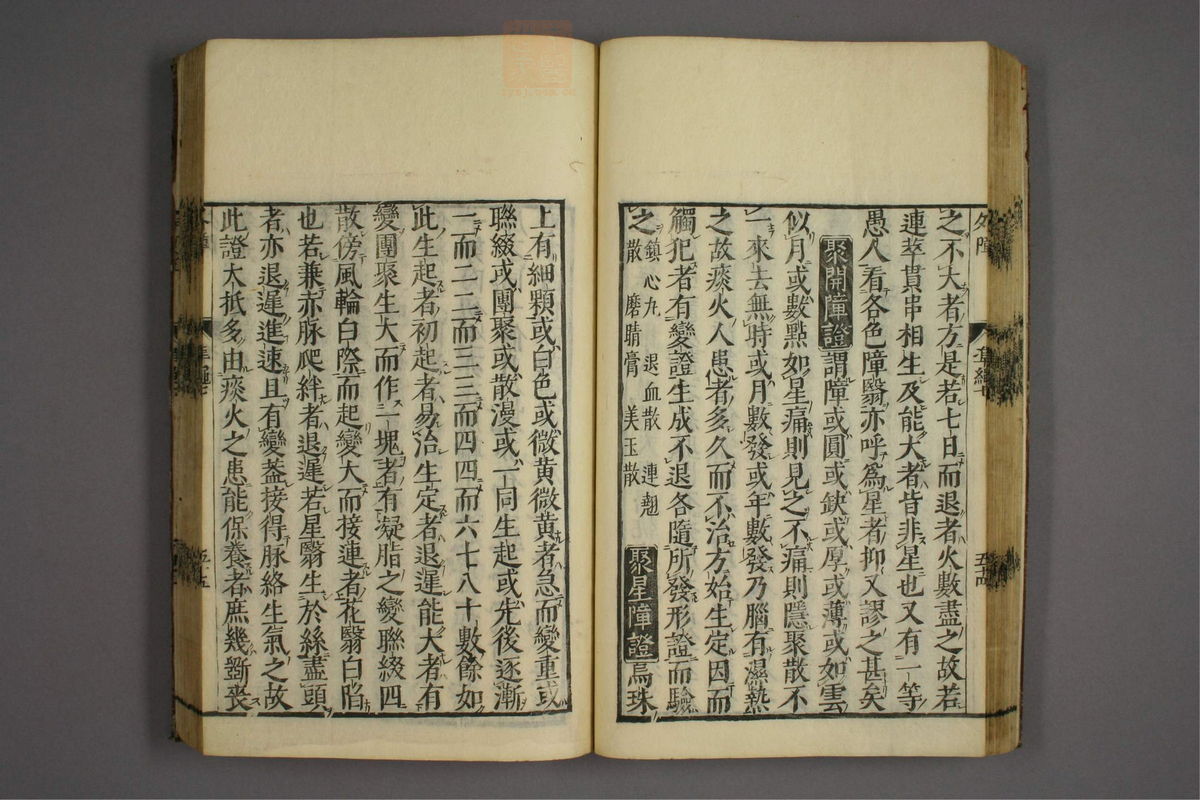 之不大者方是若七日而退者火數盡之故若
連萃貫串相生及能大者皆非星也又有一等
愚人看各色障翳亦呼爲星者抑又謬之甚矣
聚開障證謂障或圓或缺或厚或薄或如雲
似月或數點如星痛則見之不痛則隱聚散不
一來去無時或月數發或年數發乃腦有濕熱
之故痰火人患者多久而不治方始生定因而
觸犯者有變證生成不退各隨所發形證而驗
之鎮心丸 退血散 連翹
散 磨睛膏 美玉散 聚星障證烏珠
上有細顆或白色或微黄微黄者急而變重或
聯綴或團聚或散漫或一同生起或先後逐漸
一而二二而三三而四四而六七八十數餘如
此生起者初起者易治生定者退遲能大者有
變團聚生大而作一塊者有凝脂之變聯綴四
散傍風輪白際而起變大而接連者花翳白陷
也若兼赤脉爬絆者退遲若星翳生於絲盡頭
者亦退遲進速且有變盖接得脉絡生氣之故
此證大抵多由痰火之患能保養者庶幾斵喪